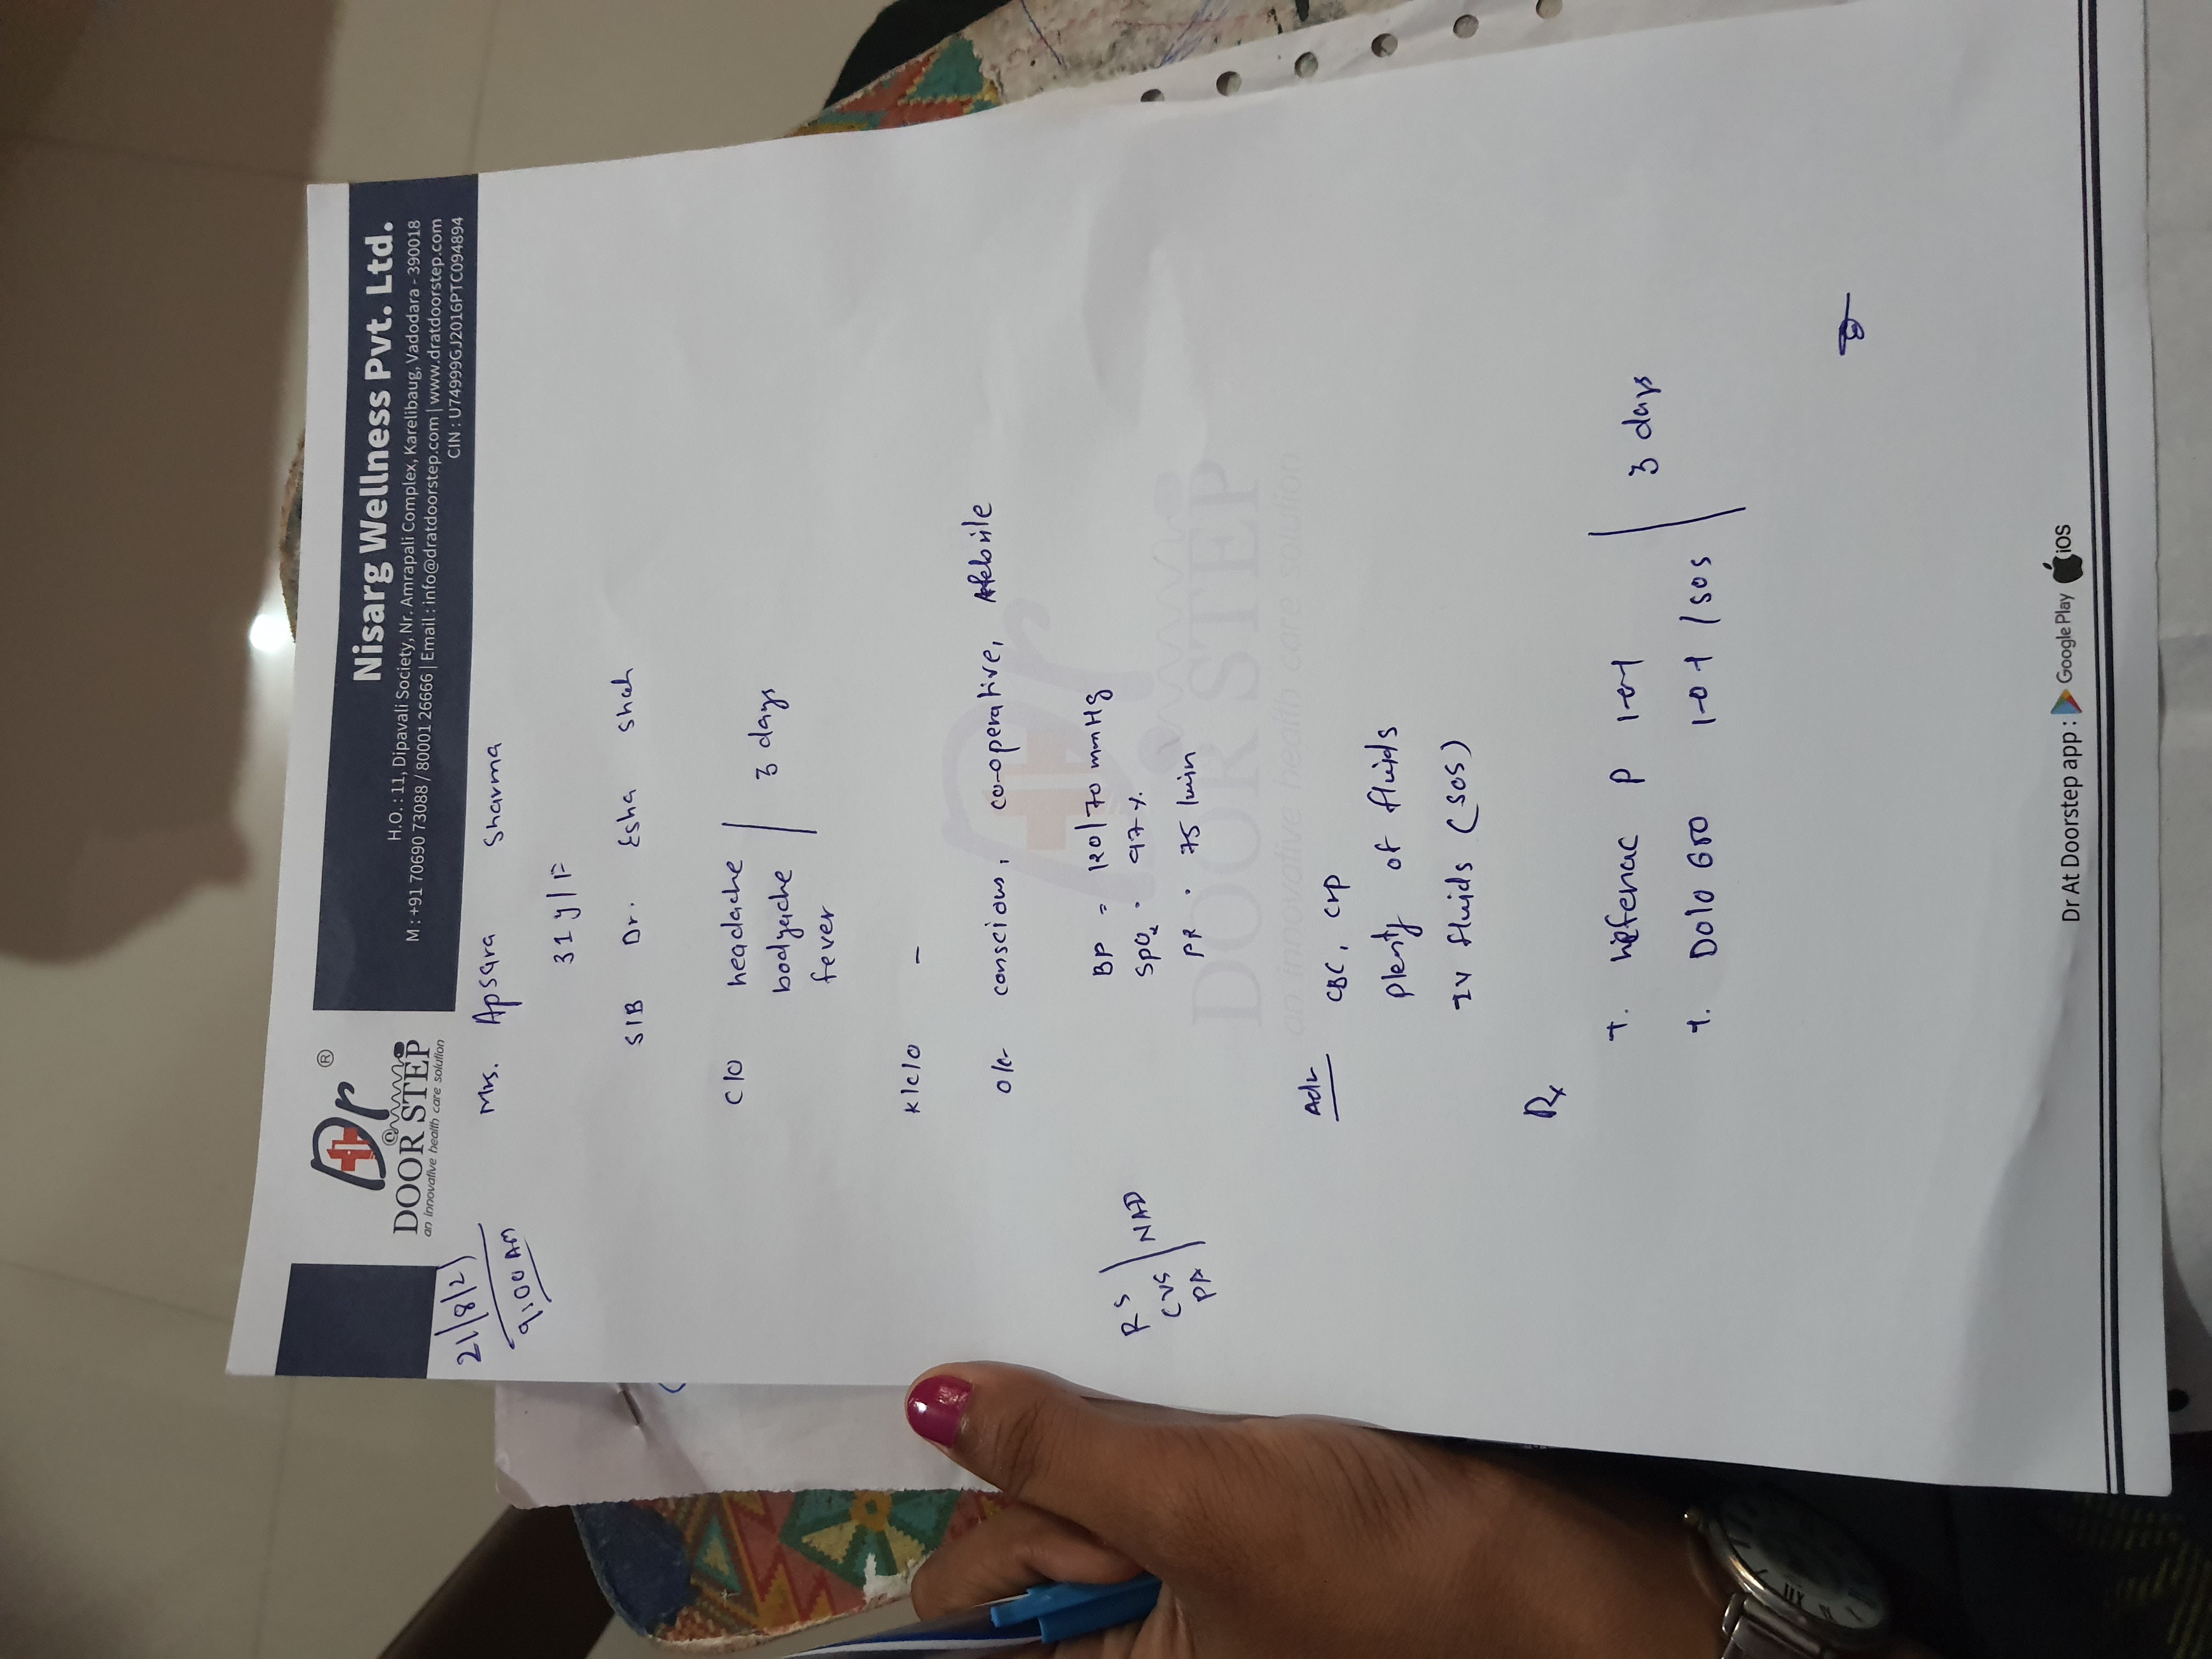 Dr ®
DOOR STEP
an innovative health care solution
Nisarg Wellness Pvt. Ltd.
H.O. : 11, Dipavali Society, Nr. Amrapali Complex, Karelibaug, Vadodara - 390018
M : +91 70690 73088 / 80001 26666 | Email : info@dratdoorstep.com | www.dratdoorstep.com
CIN : U74999GJ2016PTC094894
21/8/21
9:00 AM
Mrs. Apsara Sharma
31 y/F
S/B Dr. Esha Shah
C/O headache
bodyache
fever
3 days
K/C/O -
O/E conscious, co-operative, Afebrile
BP = 120/70 mmHg
SpO2 97%
PR 75 /min
RS
CVS
PA
NAD
Dr
DOOR STEP
an innovative health care solution
Adv
CBC, CRP
Plenty of fluids
IV fluids (SOS)
Rx
T. P 1-0-1
T. Dolo 650 1-0-1 /SOS
3 days
Dr At Doorstep app : Google Play iOS